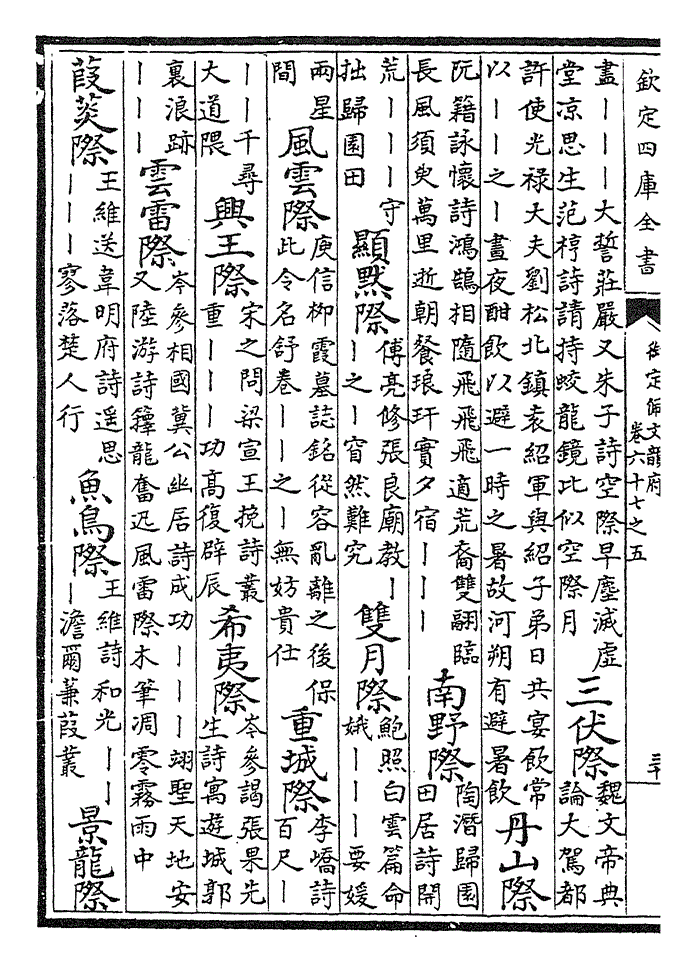 欽定四庫全書
御定佩文韻府
卷六十七之五
三十
盡丨丨丨大誓莊嚴又朱子詩空際早塵滅虛
堂凉思生范梈詩請持蛟龍鏡比似空際月
三伏際
魏文帝典
論大駕都
許使光祿大夫劉松北鎮袁紹軍與紹子弟日共宴飲常
以丨丨之丨晝夜酣飲以避一時之暑故河朔有避暑飲
丹山際
阮籍詠懷詩鴻鵠相隨飛飛飛適荒裔雙翮臨
長風須臾萬里逝朝餐琅玕實夕宿丨丨丨
南野際
陶潛歸園
田居詩開
荒丨丨丨守
拙歸園田
顯默際
傅亮修張良廟教丨
丨之丨窅然難究
雙月際
鮑照白雲篇命
娥丨丨丨要媛
兩星
間
風雲際
庾信柳霞墓誌銘從容亂離之後保
此令名舒卷丨丨之丨無妨貴仕
重城際
李嶠詩
百尺丨
丨丨千尋
大道隈
興王際
宋之問梁宣王挽詩叢
重丨丨丨功高復辟辰
希夷際
岑參謁張果先
生詩寓遊城郭
裏浪跡
丨丨丨
雲雷際
岑參相國冀公幽居詩成功丨丨丨翊聖天地安
又陸游詩籜龍奮迅風雷際木筆凋零霧雨中
葭菼際
王維送韋明府詩遥思
丨丨丨寥落楚人行
魚鳥際
王維詩和光丨丨
丨澹爾蒹葭叢
景龍際